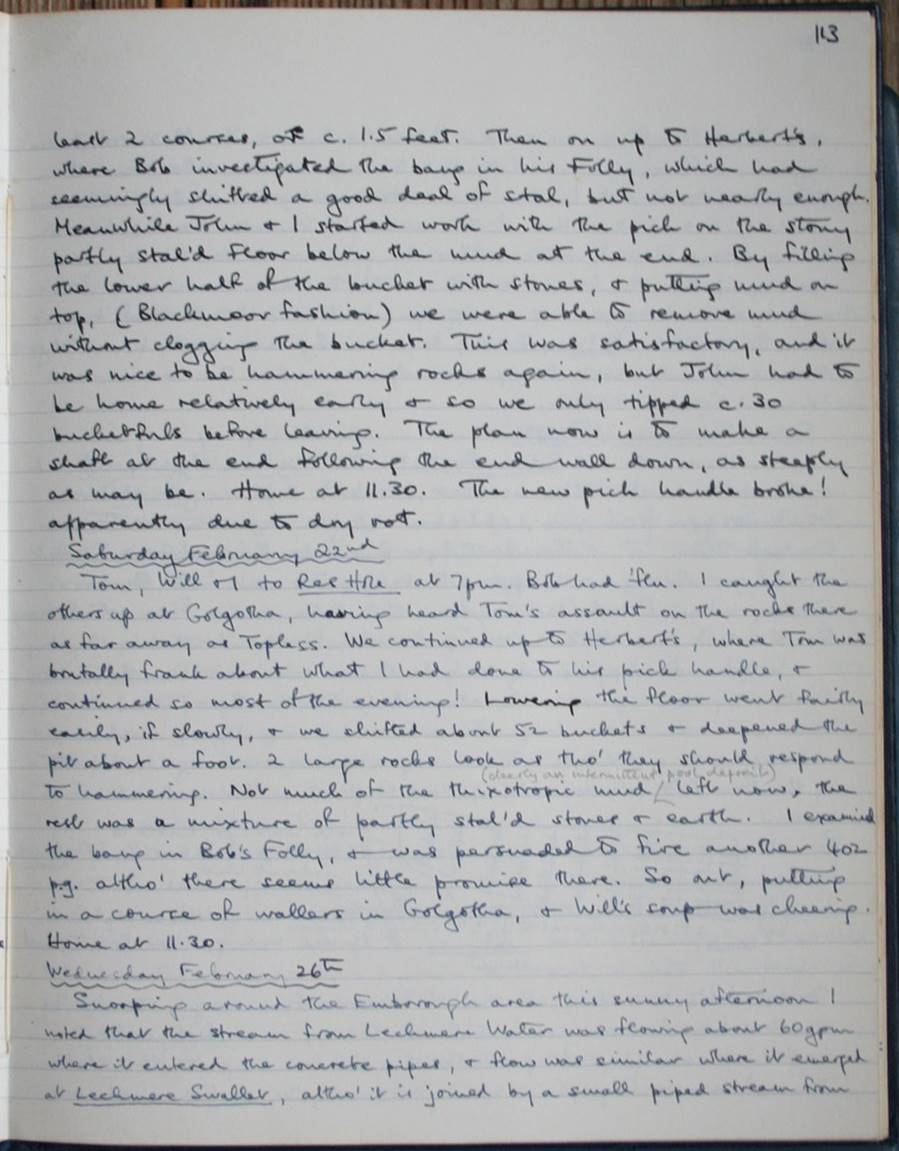 113
least 2 courses, of c. 1.5 feet. Then on up to Herbert's,
where Bob investigated the bang in his Folly, which had
seemingly shifted a good deal of stal, but not nearly enough.
Meanwhile John & I started work with the pick on the stony
partly stal'd floor below the mud at the end. By filling
the lower half of the bucket with stones, & putting mud on
top, (Blackmoor fashion) we were able to remove mud
without clogging the bucket. This was satisfactory, and it
was nice to be hammering rocks again, but John had to
be home relatively early & so we only tipped c. 30
bucketfuls before leaving. The plan now is to make a
shaft at the end following the end wall down, as steeply
as may be. Home at 11.30. The new pick handle broke!
apparently due to dry rot.
Saturday February 22nd
Tom, Will & I to Res Hole at 7pm. Bob had 'flu. I caught the
others up at Golgotha, having heard Tom's assault on the rocks there
as far away as Topless. We continued up to Herbert's, where Tom was
brutally frank about what I had done to his pick handle, &
continued so most of the evening! Lowering the floor went fairly
easily, if slowly, & we shifted about 52 buckets & deepened the
pit about a foot. 2 large rocks look as tho' they should respond
(clearly an intermittent pool deposit)
to hammering. Not much of the thixotropic mud left now, the
rest was a mixture of partly stal'd stones & earth. I examined
the bang in Bob's Folly, & was persuaded to fire another 4oz
p.g. altho' there seems little promise there. So out, putting
in a course of wallers in Golgotha, & Will's soup was cheering.
Home at 11.30.
Wednesday February 26th
Snooping around the Emborough area this sunny afternoon I
noted that the stream from Lechmere Water was flowing about 60gpm
where it entered the concrete pipes, & flow was similar where it emerged
at Lechmere Swallet, altho' it is joined by a small piped stream from